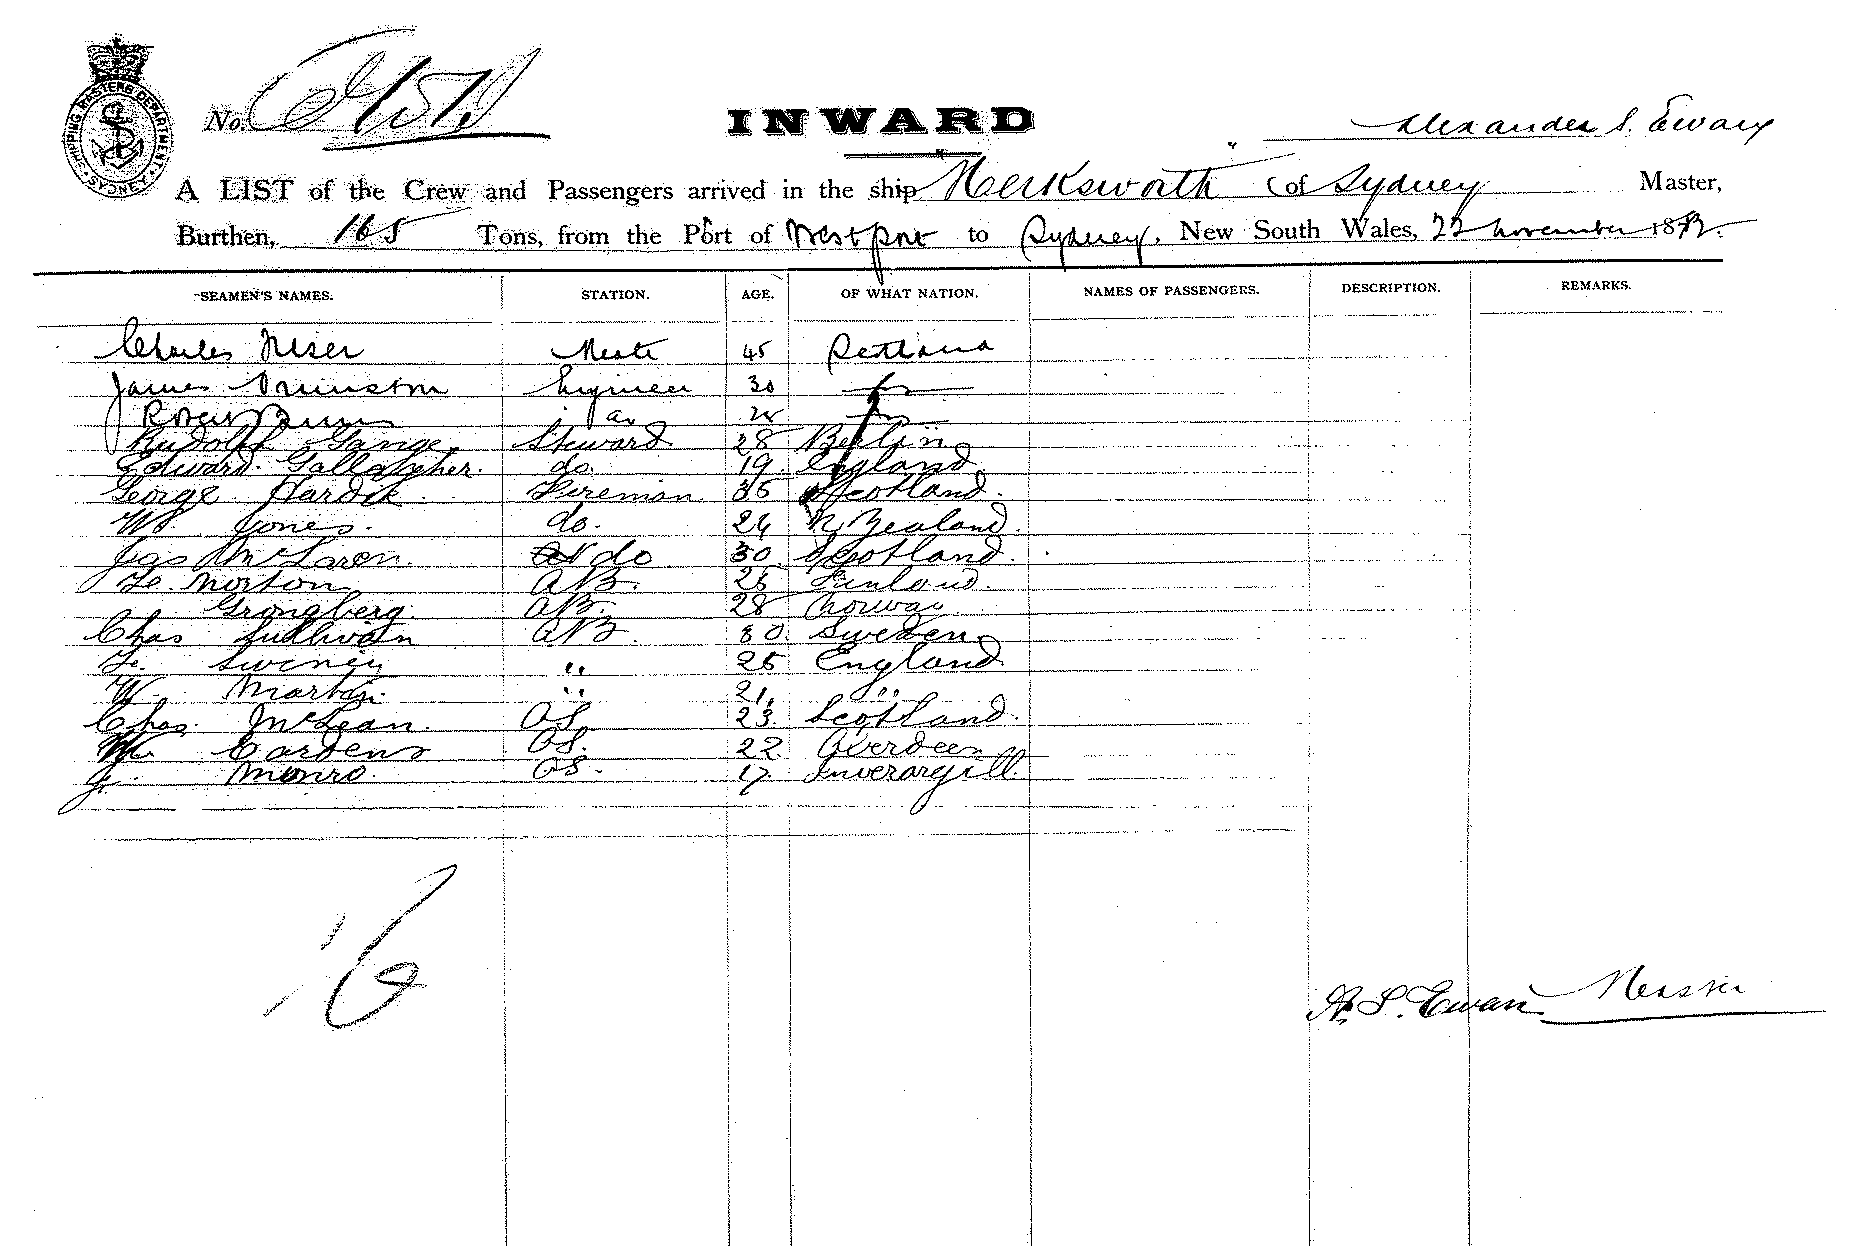 SHIPPING MASTERS DEPARTMENT SYDNEY
No.
INWARD
Alexander S. Ewan
A LIST of the Crew and Passengers arrived in the ship Merksworth (of Sydney Master,
Burthen, 165 Tons, from the Port of Westport to Sydney, New South Wales, 22 november 18
SEAMEN'S NAMES. STATION. AGE. OF WHAT NATION. NAMES OF PASSENGERS. DESCRIPTION. REMARKS.
Charles Mate 45
James Engineer 30
Robert do
Rudolf Gange Steward 28 Berlin
Edward Gallagher. do. 19 England
George Hardie Fireman 35 Scotland.
W Jones. do. 24 N Zealand.
Jas McLaren. do 30 Scotland.
Norton AB. 25 Finland.
Grongberg. AB. 28 Norway
Chas Sullivan AB 30. Sweden
Sweney " 25 England
W. Martin. " 21, "
Chas. McLean. OS. 23. Scotland.
Wm Cardens OS. 22 Aberdeen
J. Monro. OS. 17 Inverargill
16
A. S. Ewan Master